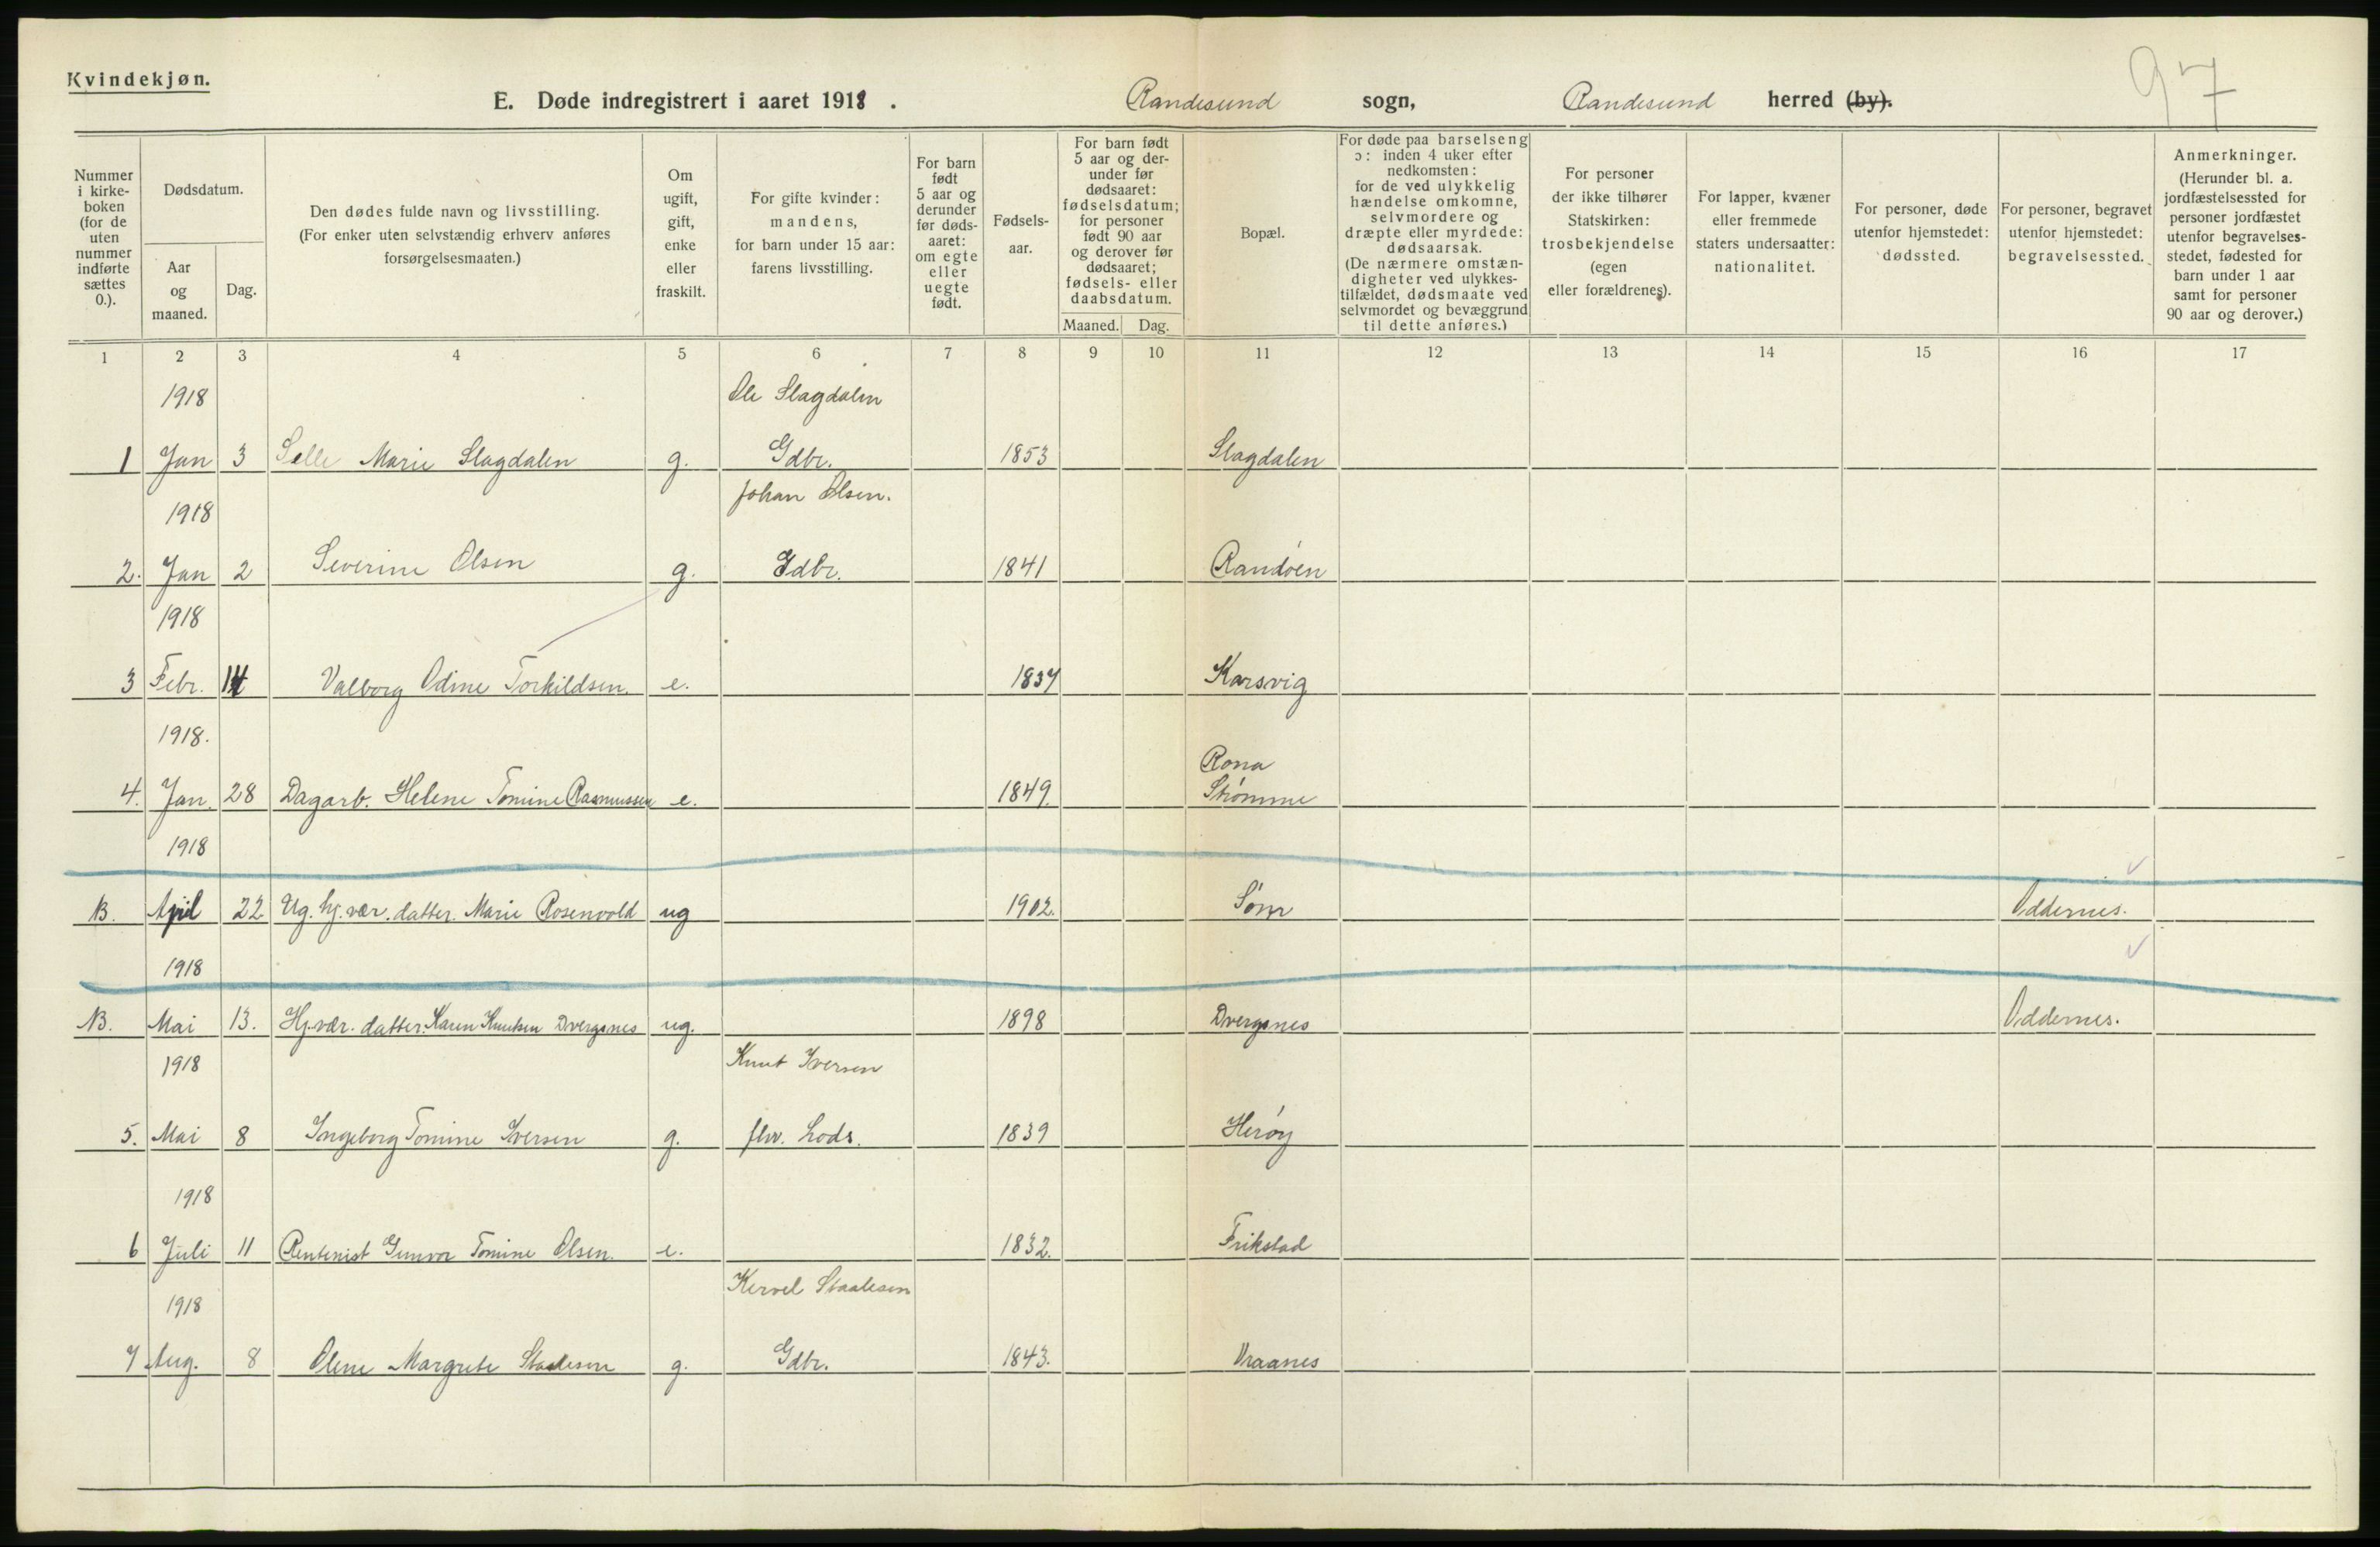 Kvindekjøn.
E. Døde indregistrert i aaret 1918.
Randesund sogn, Randesund herred (by).
97
Nummer i kirke-boken (for de uten nummer indførte sættes 0.).
Dødsdatum.
Aar og maaned.
Dag.
Den dødes fulde navn og livsstilling.
(For enker uten selvstændig erhverv anføres forsørgelsesmaaten.)
Om ugift, gift, enke eller fraskilt.
For gifte kvinder: mandens, for barn under 15 aar: farens livsstilling.
For barn født 5 aar og derunder før døds-aaret: om egte eller uegte født.
Fødsels-aar.
For barn født 5 aar og der-under før dødsaaret: fødselsdatum; for personer født 90 aar og derover før dødsaaret; fødsels- eller daabsdatum.
Maaned. Dag.
Bopæl.
For døde paa barselseng ɔ: inden 4 uker efter nedkomsten: for de ved ulykkelig hændelse omkomne, selvmordere og dræpte eller myrdede: dødsaarsak. (De nærmere omstæn-digheter ved ulykkes-tilfældet, dødsmaate ved selvmordet og bevæggrund til dette anføres.)
For personer der ikke tilhører Statskirken: trosbekjendelse (egen eller forældrenes).
For lapper, kvæner eller fremmede staters undersaatter: nationalitet.
For personer, døde utenfor hjemstedet: dødssted.
For personer, begravet utenfor hjemstedet: begravelsessted.
Anmerkninger. (Herunder bl. a. jordfæstelsessted for personer jordfæstet utenfor begravelses-stedet, fødested for barn under 1 aar samt for personer 90 aar og derover.)
1 2 3 4 5 6 7 8 9 10 11 12 13 14 15 16 17
1918 Ole Slagdalen
1 Jan 3 Selle Marie Slagdalen g. Gdbr. 1853 Slagdalen
1918 Johan Olsen.
2. Jan 2 Severine Olsen g. Gdbr. 1841 Randöen
1918
3 Febr. 14 Valborg Odine Torkildsen. e. 1837 Korsvig
1918. Rona
4. Jan. 28 Dagarb. Helene Tomine Rasmussen e. 1849. Strömme
1918
B. April 22 Ug. hj. vær. datter. Marie Rosenvold ug 1902. Söm Oddernes.
1918
B. Mai 13. Hj. vær. datter. Karen Knutsen Dvergsnes ug. 1898 Dvergsnes Oddernes.
1918 Knut Iversen
5. Mai 8 Ingeborg Tomine Iversen g. fhv. Lods. 1839 Heröy
1918
6 Juli 11 Rentenist Gunvor Tomine Olsen. e. 1832. Frikstad
1918 Kervel Staalesen
7 Aug. 8 Olene Margrete Staalesen g. Gdbr. 1843. Vraanes